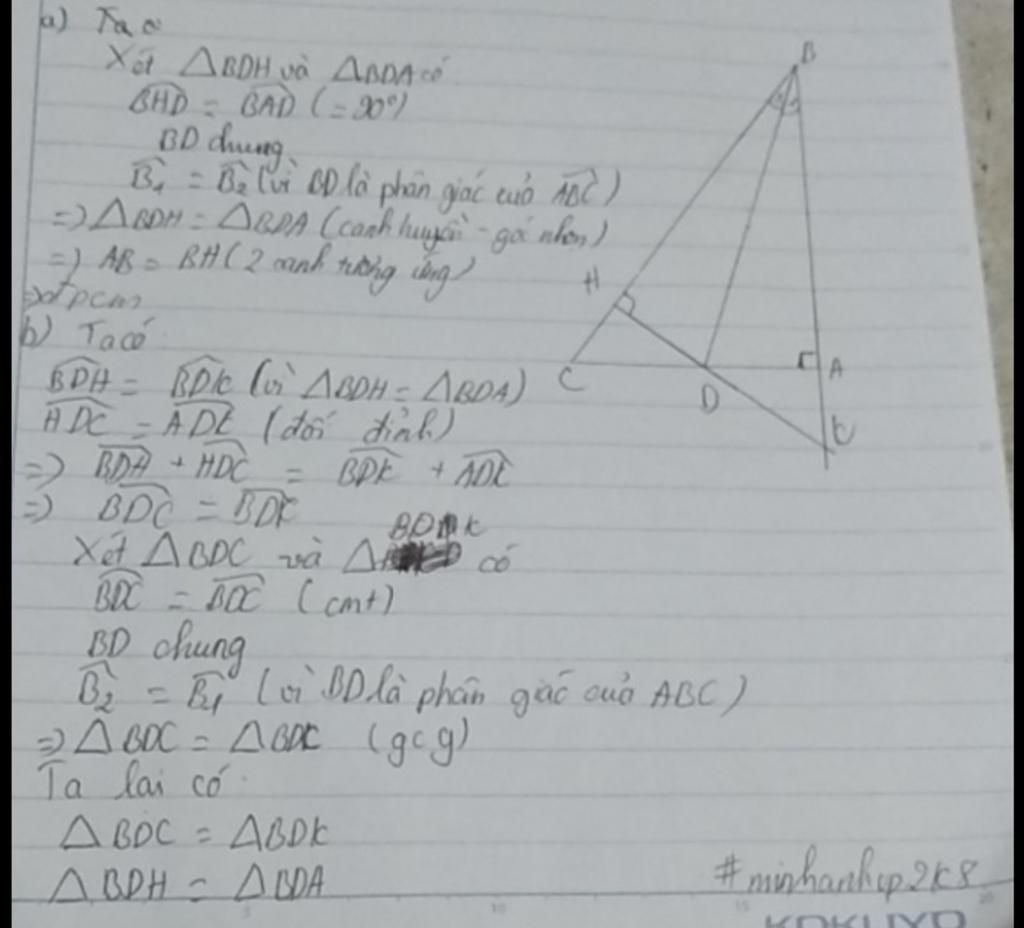 a) Ta có
Xét △BDH và △BDA có
BHD = BAD (= 90°)
BD chung
B₁ = B₂ (vì BD là phân giác cuả ABC)
=> △BDH = △BDA (canh huyền - góc nhọn)
=> AB = BH (2 canh tương ứng)
=> đpcm
b) Ta có
BDH = BDK (vì △BDH = △BDA)
HDC = ADK (đối đỉnh)
=> BDH + HDC = BDK + ADK
=> BDC = BDK
Xét △BDC và △ BDK có
BDC = BDC (cmt)
BD chung
B₂ = B₁ (vì BD là phân giác cuả ABC)
=> △BDC = △BDK (gcg)
Ta lai có
△BDC = △BDK
△BDH = △BDA
B
H
C
D
A
K
#minhanhcp2k8
5 10 15 20
KOKUYO